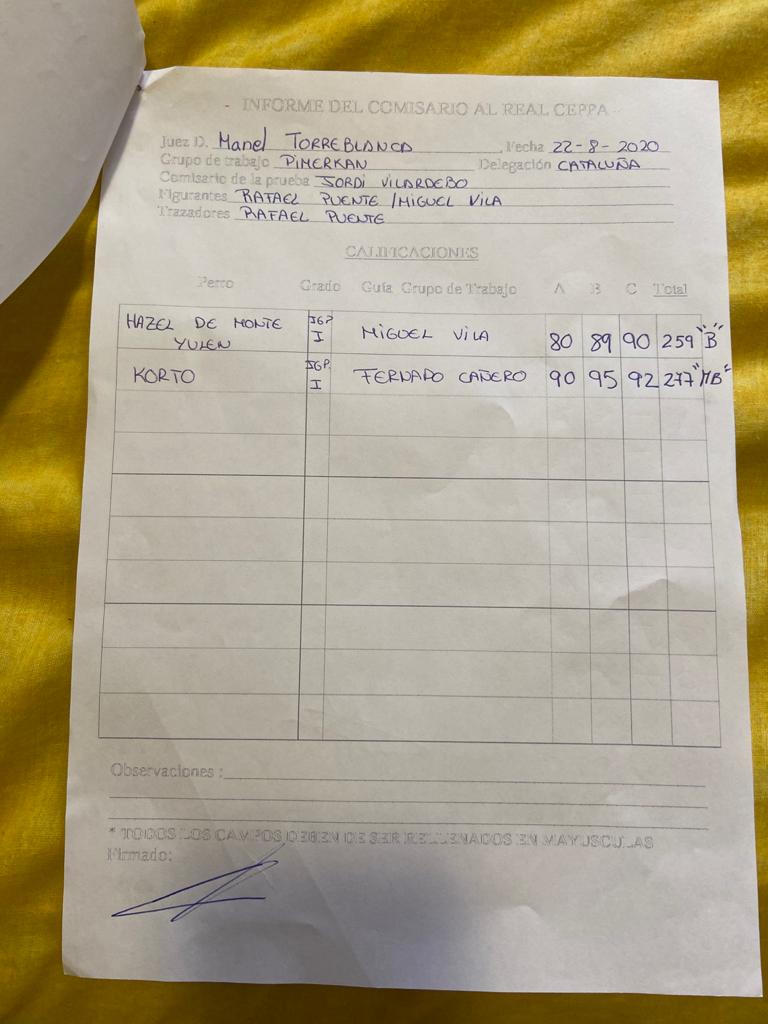 - INFORME DEL COMISARIO AL REAL CEPPA -
Juez D. Manel TORREBLANCA Fecha 22-8-2020
Grupo de trabajo PIMERKAN Delegación CATALUÑA
Comisario de la prueba JORDI VILARDEBO
Figurantes RAFAEL PUENTE / MIGUEL VILA
Trazadores RAFAEL PUENTE
CALIFICACIONES
Perro Grado Guía Grupo de Trabajo A B C Total
HAZEL DE MONTE YULEN IGP I MIGUEL VILA 80 89 90 259 "B"
KORTO IGP I FERNADO CAÑERO 90 95 92 277 "MB"
Observaciones :
* TODOS LOS CAMPOS DEBEN DE SER RELLENADOS EN MAYUSCULAS
Firmado: